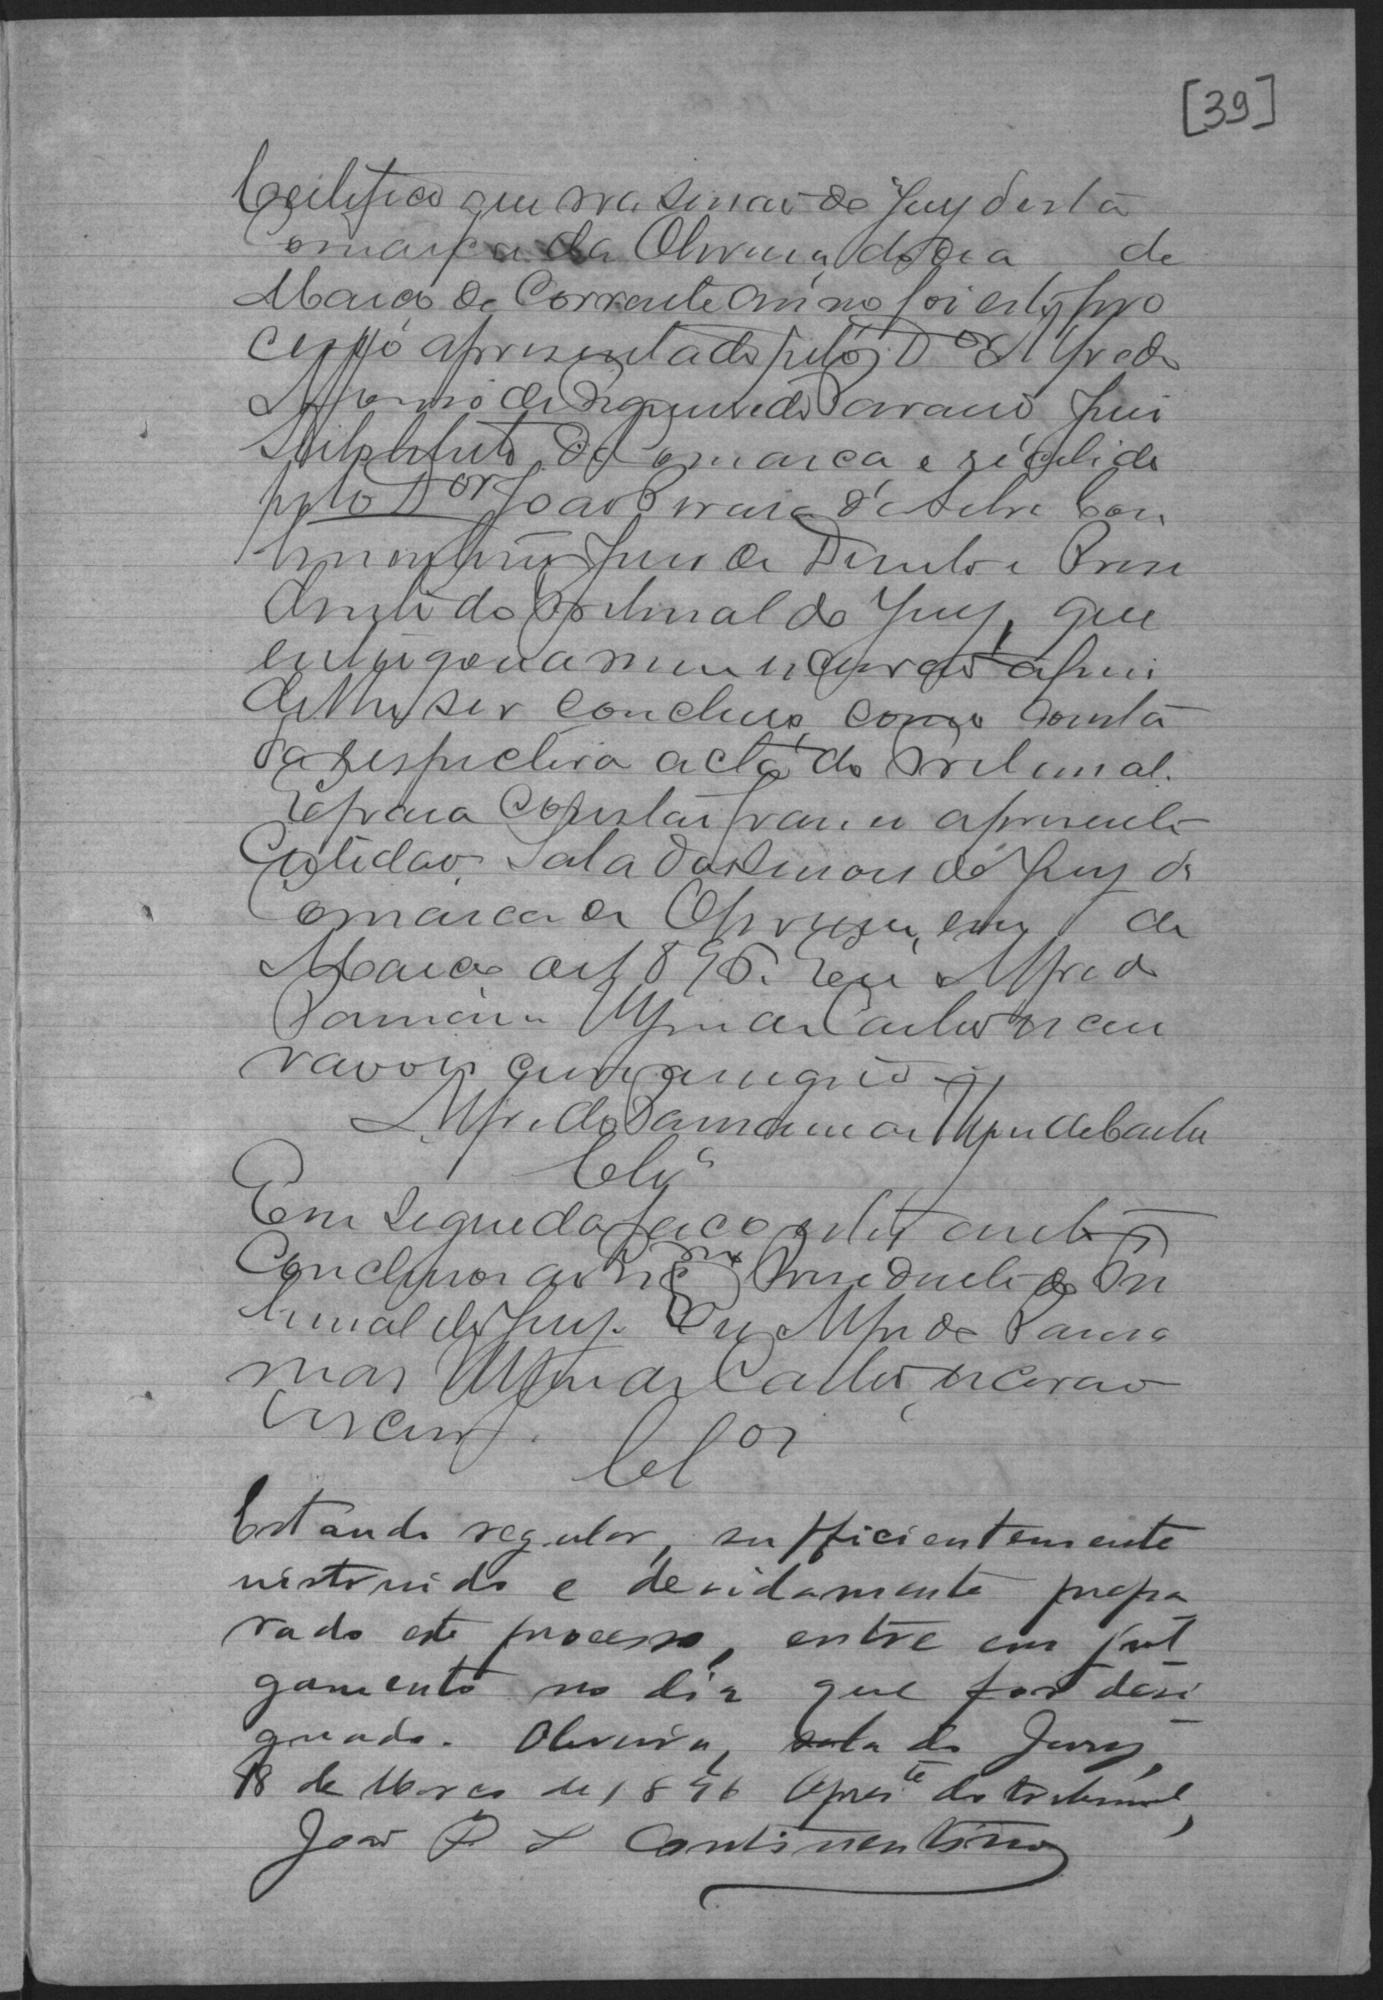 [39]
Certifico que na sessão do Jury desta
Comarca da Oliveira, do dia de
Março do Corrente anno foi este pro
cesso apresentado pelo Dor Alfredo
Affonso de Figueiredo Paraiso Juiz
Substituto da Comarca e recebido
pelo Dor João Pereira da Silva Con
tinentino Juiz de Direito e Presi
dente do Tribunal do Jury, que
entregou a mim escrivão afim
de lhe ser concluso, como consta
da respectiva acta do Tribunal.
E para constar passei a presente
Certidão. Sala das sessões do Jury da
Comarca de Oliveira, em de
Março de 1896. Eu Alfredo
de Castro escri
vão o escrevi e assigno
Alfredo de Castro
Clsº
Em seguida faço estes autos
Conclusos ao Presidente do Tri
bunal do Jury. Eu Alfredo
de Castro, escrivão
escrevi.
Clos
Estando regular, sufficientemente
instruido e devidamente prepa
rado este processo, entre em jul
gamento no dia que for desi
gnado. Oliveira, sala do Jury,
18 de Março de 1896 O preste do tribunal,
João P S Continentino